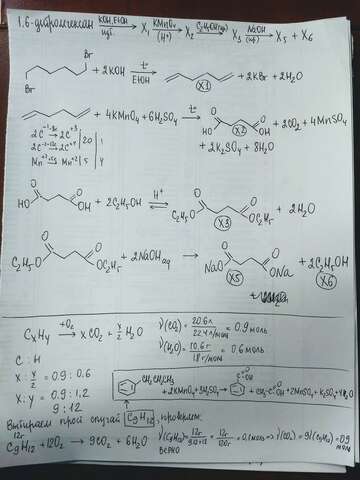 1,6-дибромгексан KOH, EtOH изб. → X₁ KMnO₄ (H⁺) → X₂ C₂H₅OH (H⁺) → X₃ NaOH (aq) → X₅ + X₆
Br
Br + 2KOH t° EtOH → X1 + 2KBr + 2H₂O
+ 4KMnO₄ + 6H₂SO₄ t° → HO O X2 O OH + 2CO₂ + 4MnSO₄
+ 2K₂SO₄ + 8H₂O
20 | 1
Mn⁺⁷ +5ē → Mn⁺² | 5 | 4
HO O O OH + 2C₂H₅OH H⁺ ⇌ C₂H₅O O X3 O OC₂H₅ + 2H₂O
C₂H₅O O O OC₂H₅ + 2NaOH aq → NaO O X5 O ONa + 2C₂H₅OH X6
CxHy +O₂ → xCO₂ + y/2 H₂O
ν(CO₂) = 20.6л / 22.4л/моль = 0.9 моль
ν(H₂O) = 10,6г / 18г/моль = 0.6 моль
C : H
x : y/2 = 0.9 : 0.6
x : y = 0.9 : 1.2
9 : 12
CH₂CH₂CH₃ + 2KMnO₄ + 3H₂SO₄ → OH + CH₃-C OH + 2MnSO₄ + K₂SO₄ + 4H₂O
Выбираем прой случай C₉H₁₂, проверяем:
12г
C₉H₁₂ + 12O₂ → 9CO₂ + 6H₂O
ν(C₉H₁₂) = 12г / 9.12+12 = 12г / 120г = 0.1моль ⇒ ν(CO₂) = 9ν(C₉H₁₂) = 0.9 моль
верно